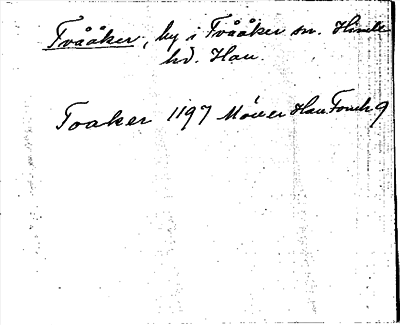 Tvååker, by i Tvååker sn. Himle
hd. Hall.
Toaker 1197 Möller Hall Forsk 9